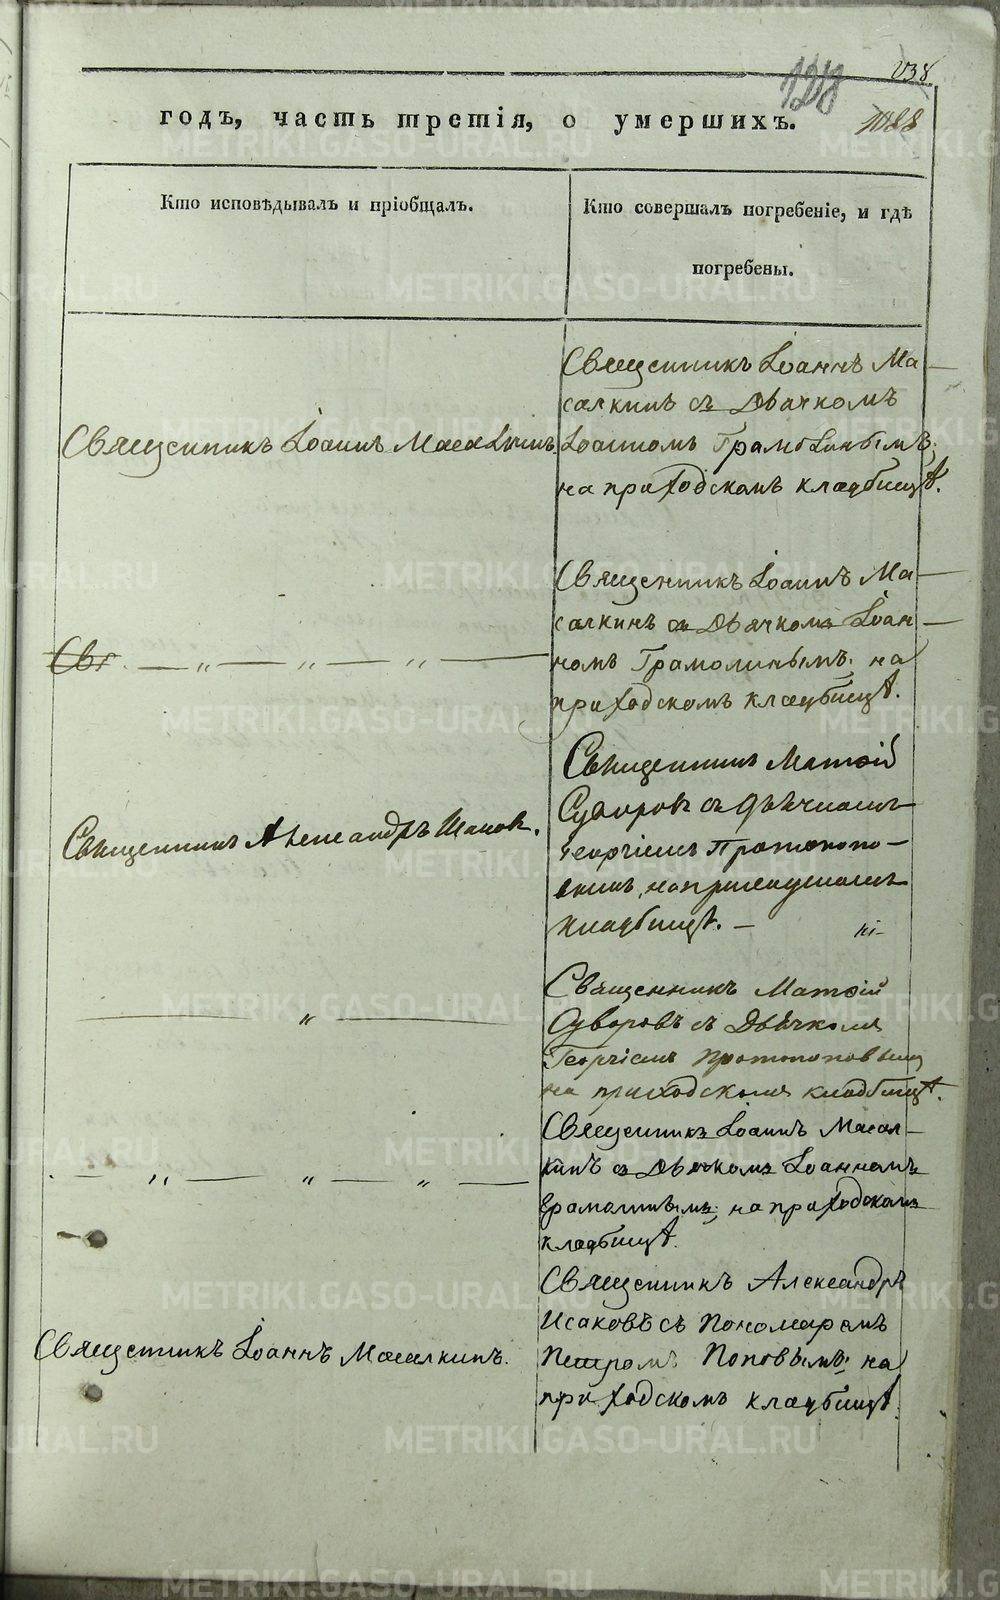 238
128
годъ, часть третія, о умершихъ.
Кто исповѣдывалъ и пріобщалъ.
Кто совершалъ погребеніе, и гдѣ
погребены.
Священникъ Іоаннъ Ма-
салкинъ съ Дьячкомъ
Священникъ Іоаннъ Масалкинъ.
Іоанномъ Грамолинымъ,
на приходскомъ кладбищѣ.
Священникъ Іоаннъ Ма-
салкинъ съ Дьячкомъ Іоан-
Свя — „ — „ — „ —
номъ Грамолинымъ, на
приходскомъ кладбищѣ.
Священникъ Матѳій
Суворовъ съ дьячкомъ
Священникъ Александръ Исаковъ.
Георгіемъ Протопопо-
вымъ, на приходскомъ
кладбищѣ. —
Священникъ Матѳій
Суворовъ съ Дьячкомъ
— „ —
Георгіемъ Протопоповымъ
на приходскомъ кладбищѣ.
Священникъ Іоаннъ Масал-
кинъ съ Дьячкомъ Іоанномъ
— „ — „ — „ —
Грамолинымъ, на приходскомъ
кладбищѣ.
Священникъ Александръ
Исаковъ съ Пономаремъ
Священникъ Іоаннъ Масалкинъ.
Петромъ Поповымъ, на
приходскомъ кладбищѣ.
METRIKI.GASO-URAL.RU